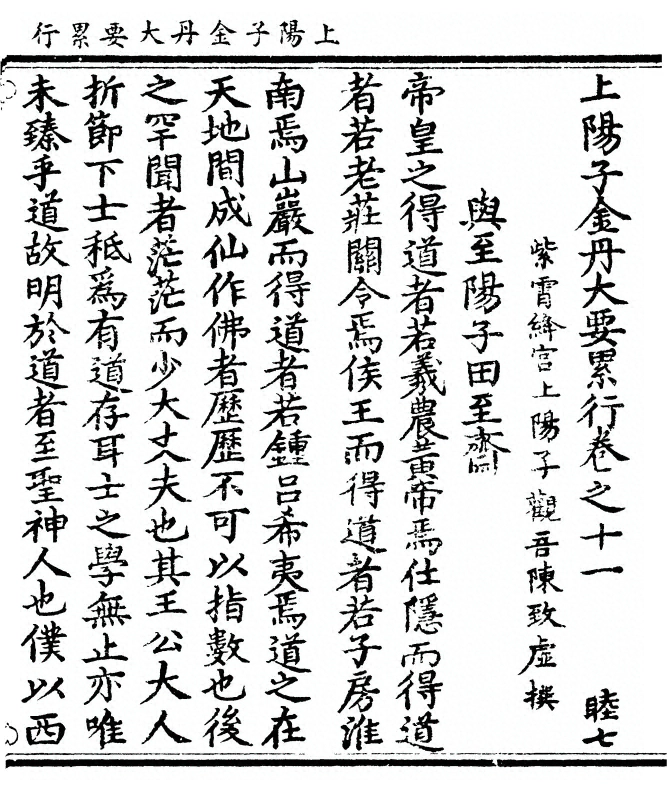 上陽子金丹大要累行
上陽子金丹大要累行卷之十一　睦七
紫霄絳宮上陽子觀吾陳致虛撰
與至陽子田至齋
帝皇之得道者若羲農黃帝焉仕隱而得道
者若老莊關令焉侯王而得道者若子房淮
南焉山巖而得道者若鍾呂希夷焉道之在
天地間成仙作佛者歷歷不可以指數也後
之罕聞者茫茫而少大丈夫也其王公大人
折節下士秪為有道存耳士之學無止亦唯
未臻乎道故明於道者至聖神人也僕以西